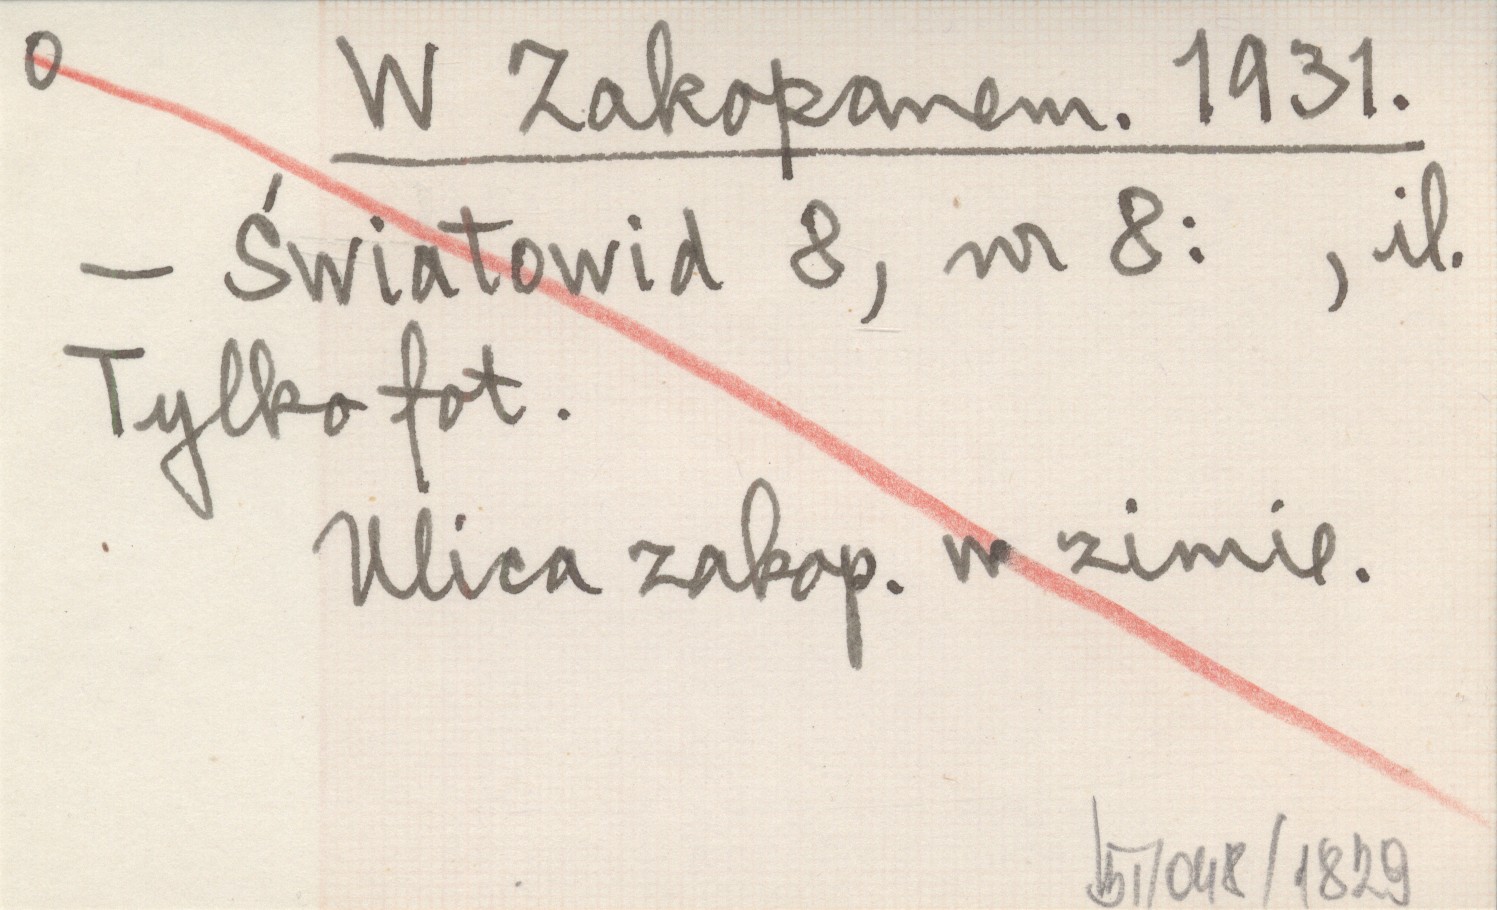 O
W Zakopanem. 1931.
— Światowid 8, nr 8: , il.
Tylko fot.
Ulica zakop. w zimie.
/048/1829